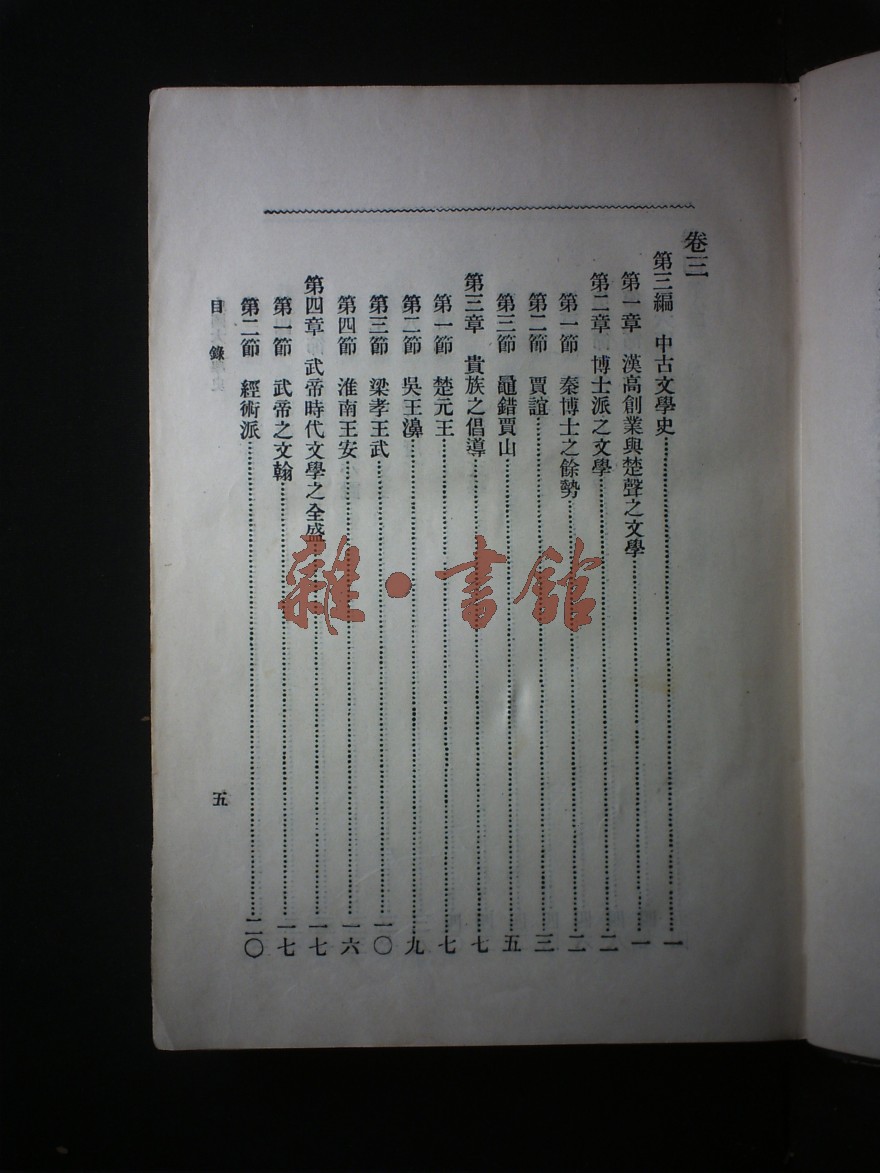 卷三
第三編 中古文學史……一
第一章 漢高創業與楚聲之文學……一
第二章 博士派之文學……二
第一節 秦博士之餘勢……二
第二節 賈誼……三
第三節 鼂錯賈山……五
第三章 貴族之倡導……七
第一節 楚元王……七
第二節 吳王濞……九
第三節 梁孝王武……一〇
第四節 淮南王安……一六
第四章 武帝時代文學之全盛……一七
第一節 武帝之文翰……一七
第二節 經術派……二〇
目錄
五
雜·書館